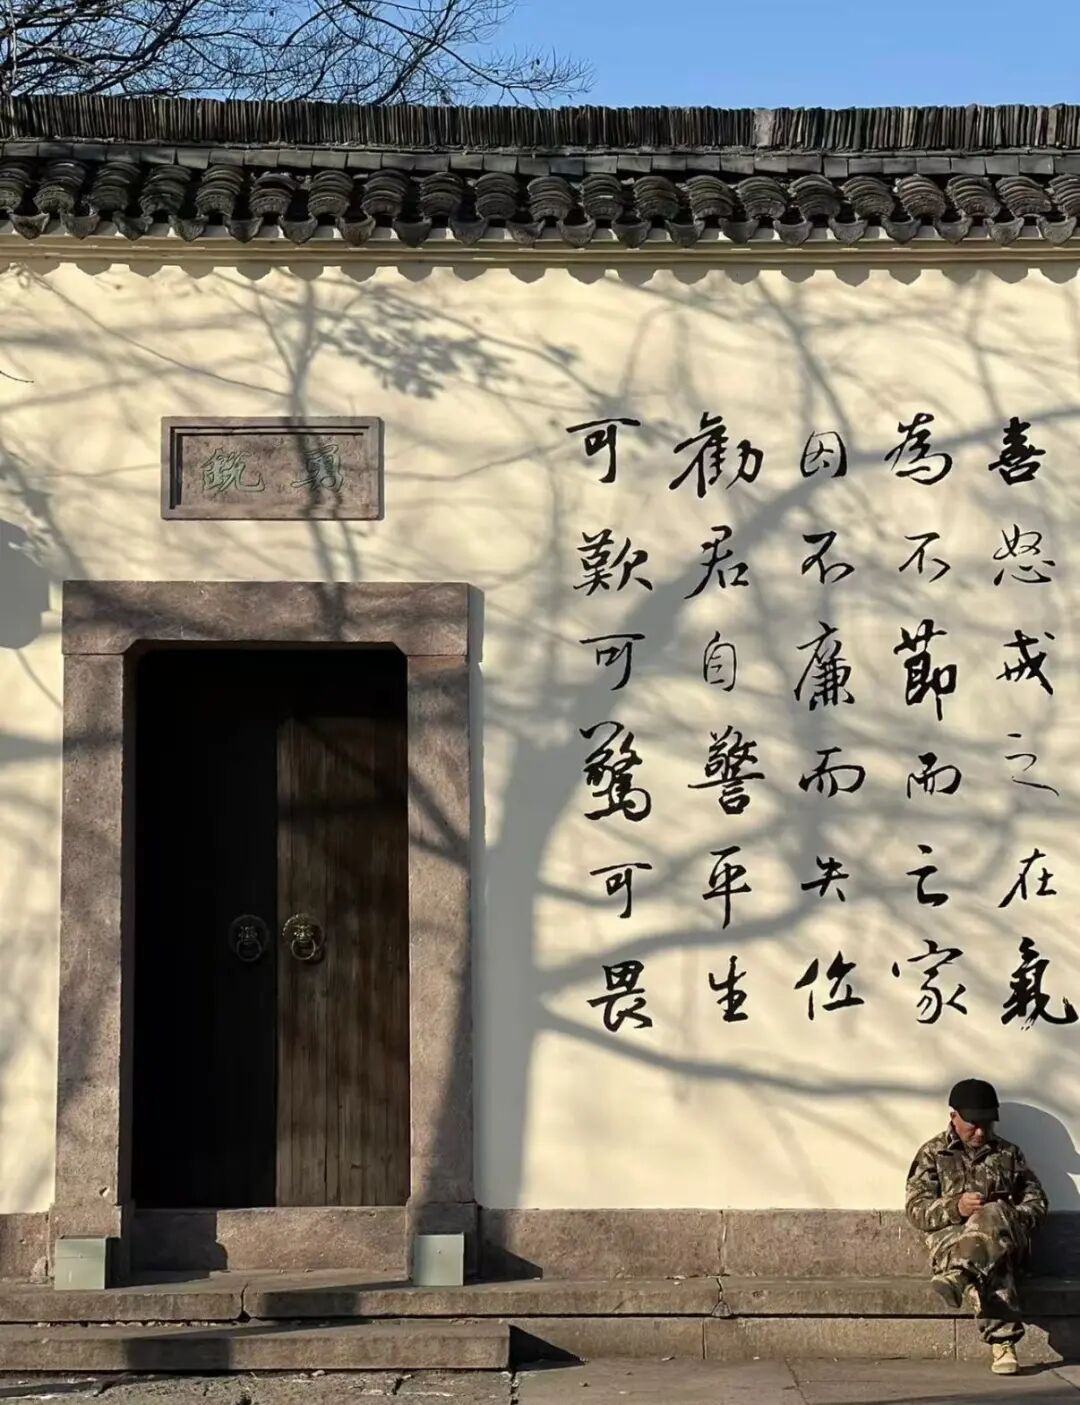 喜怒戒之在氣
為不節而亡家
因不廉而失位
勸君自警平生
可歎可驚可畏